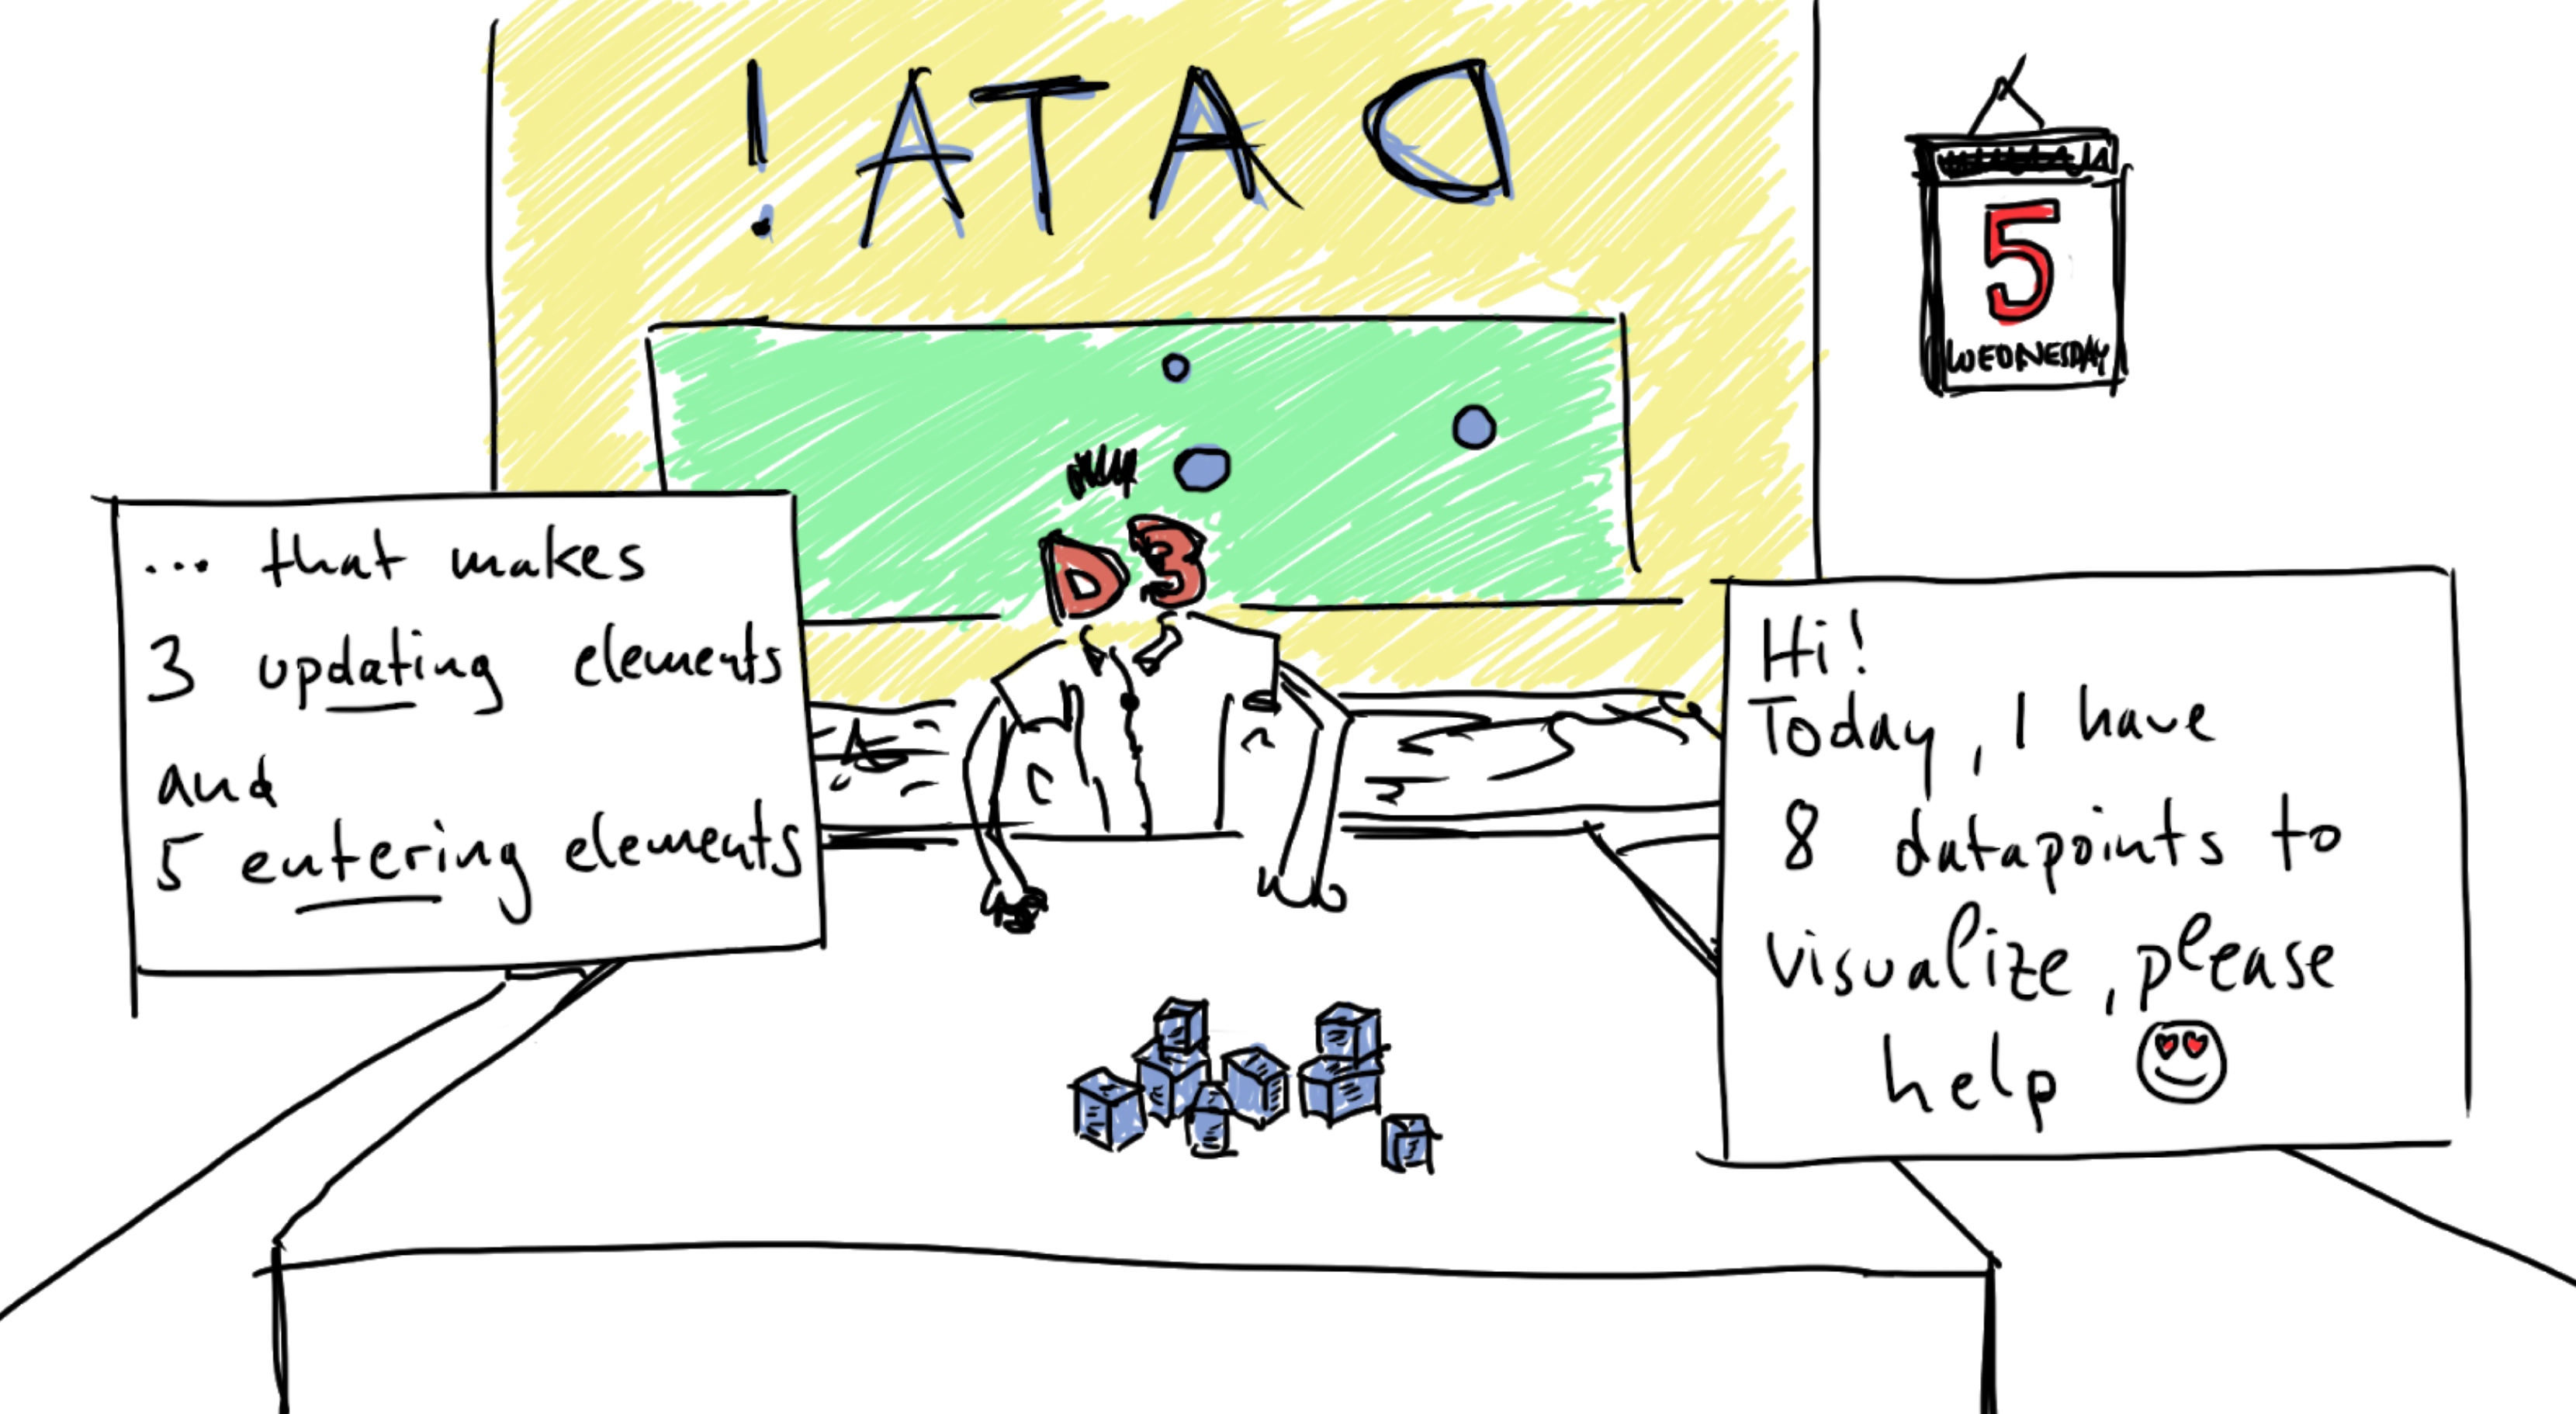 ! ATAD
5
WEDNESDAY
D3
... that makes
3 updating elements
and
5 entering elements
Hi!
Today, I have
8 datapoints to
visualize, please
help